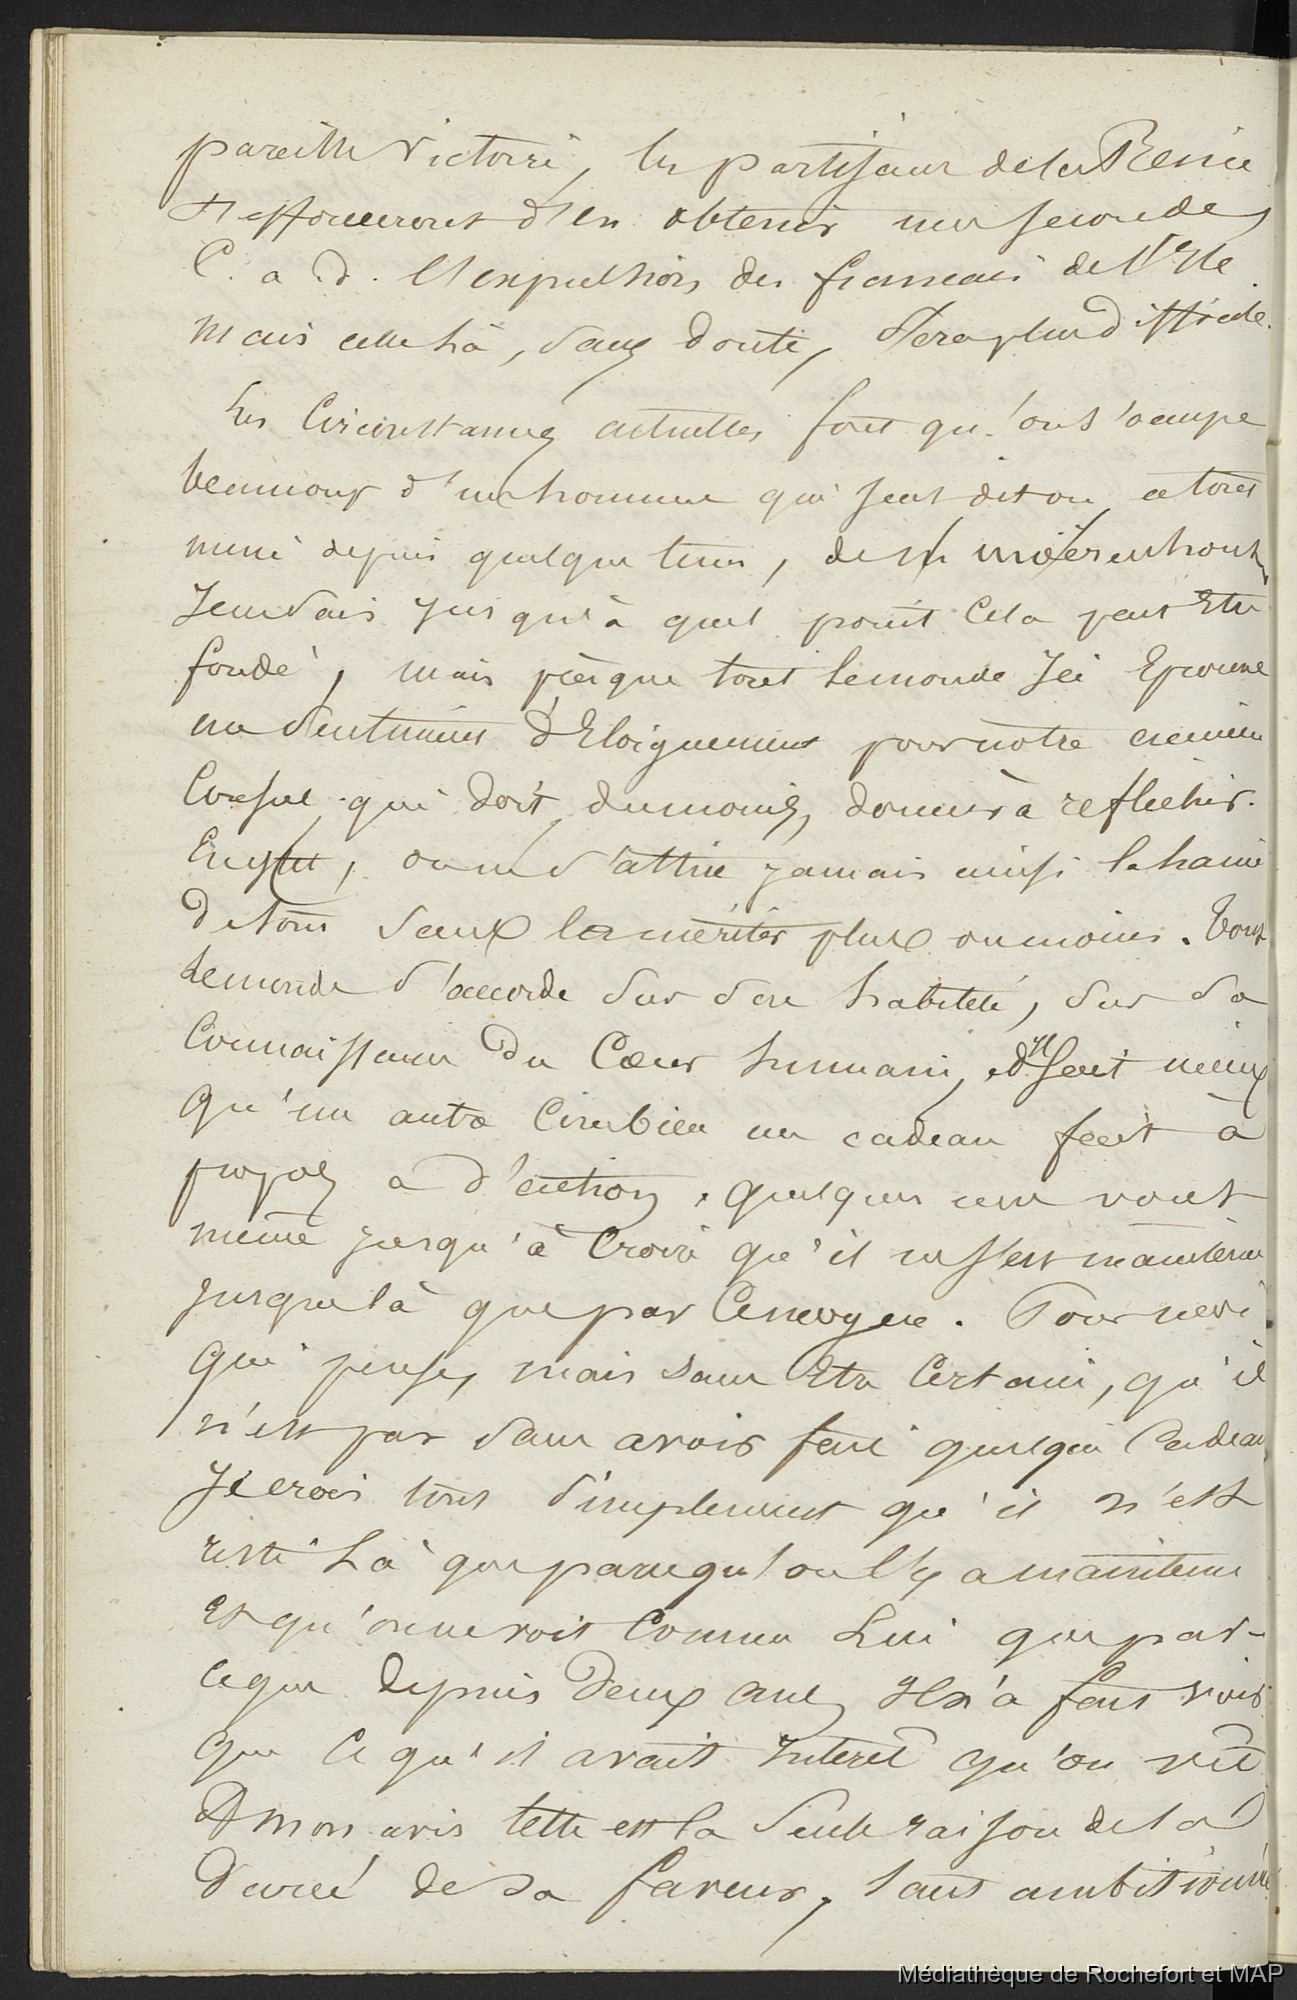 pareille victoire, les partisans de la Reine
s'efforceront d'en obtenir une seconde,
C. a. d. l'expulsion des francais de l'Ile.
Mais celle là, sans doute, sera plus difficile.
Les Circonstances actuelles font qu'on s'occupe
beaucoup d'un homme qui seul dit on a tout
mené depuis quelque tems, de
Je ne sais jusqu'à quel point Cela peut Etre
fondé, mais presque tout le monde Ici Eprouve
un sentiment d'Eloignement pour notre ancien
Consul qui doit, du moins, donner à reflechir.
En effet, on ne s'attire jamais ainsi la haine
de tous sans la mériter plus ou moins. Tout
le monde s'accorde sur son habileté, sur sa
Connaissance du Cœur humain, il sait mieux
qu'un autre Combien un cadeau fait à
propos a d'action. quelques uns vont
même jusqu'à Croire qu'il ne s'est maintenu
jusque là que par Ce moyen. Pour moi
qui pense, mais sans Etre Certain, qu'il
n'est pas sans avoir fait quelque Cadeau
Je crois tout simplement qu'il n'est
resté Là que parce qu'on l'y a maintenu
et qu'on ne voit Comme Lui que par-
ce que depuis deux ans Il n'a fait voir
que Ce qu'il avait Interet qu'on vit
A mon avis telle est la seule raison de la
durée de sa faveur,
Médiathèque de Rochefort et MAP